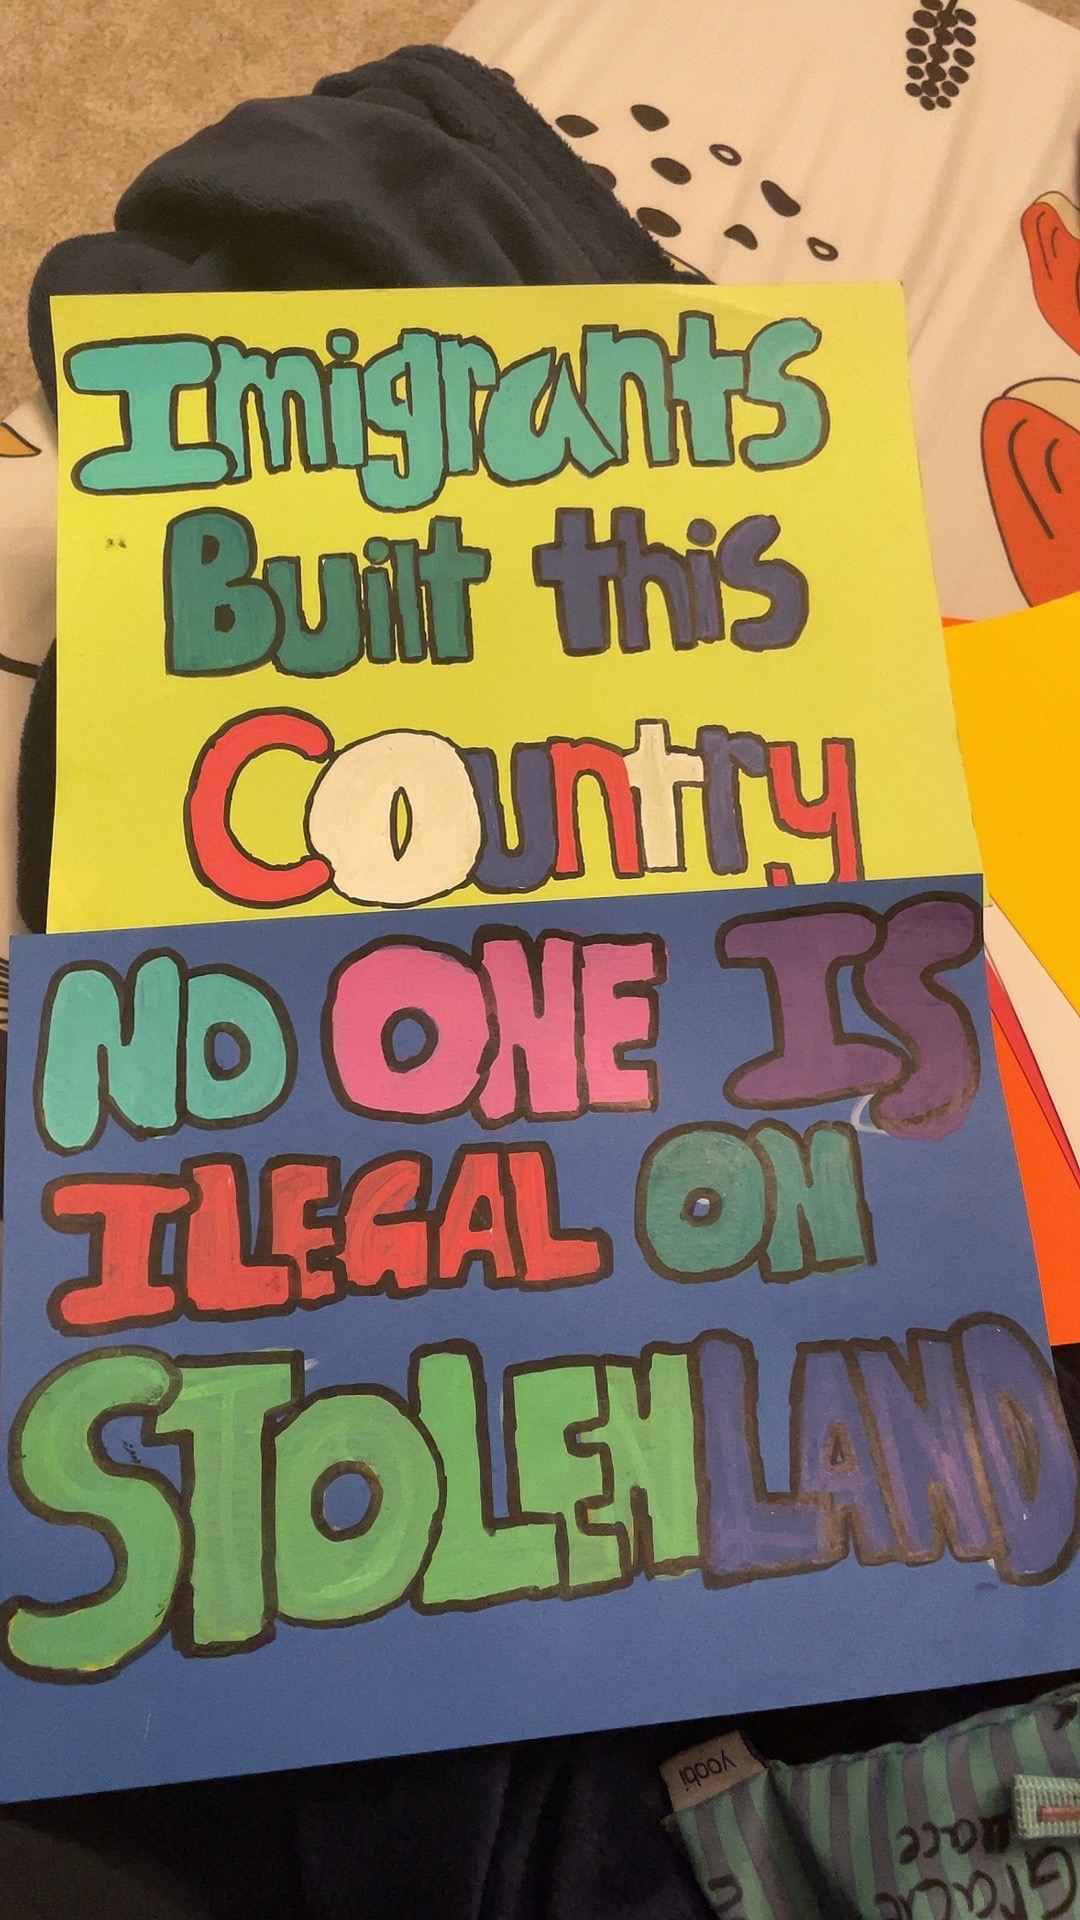 Imigrants
Built this
Country
NO ONE IS
ILEGAL ON
STOLEN LAND
yoobi